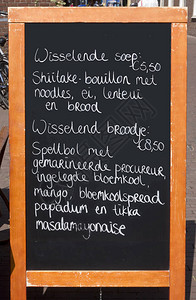 Wisselende soep:
€5,50
Shiitake-bouillon met
noodles, ei, lenteui
en brood
Wisselend broodje:
€8,50
Spellbol met
gemarineerde procureur,
ingelegde bloemkool,
mango, bloemkoolspread
papadum en tikka
masalamayonaise